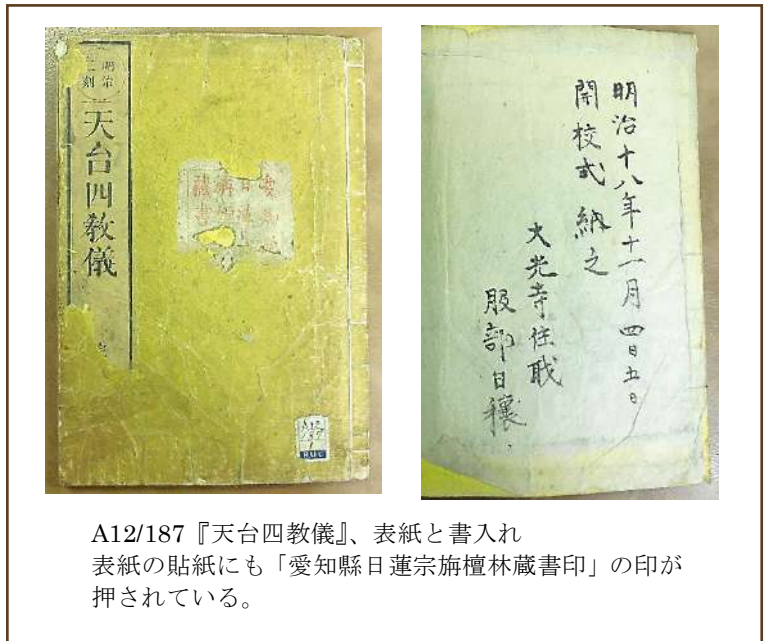 明治
天台四教儀
A12
187
1
明治十八年十一月四日五日
開校式納之
大光寺住職
服部日穰
A12/187『天台四教儀』、表紙と書入れ
表紙の貼紙にも「愛知縣日蓮宗旃檀林蔵書印」の印が
押されている。